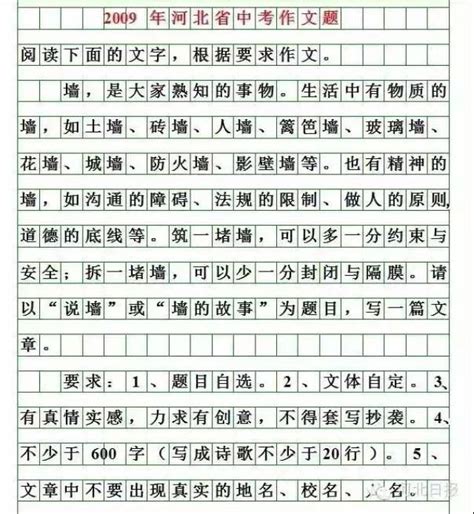 2009 年河北省中考作文题
阅读下面的文字，根据要求作文。
墙，是大家熟知的事物。生活中有物质的
墙，如土墙、砖墙、人墙、篱笆墙、玻璃墙、
花墙、城墙、防火墙、影壁墙等。也有精神的
墙，如沟通的障碍、法规的限制、做人的原则
道德的底线等。筑一堵墙，可以多一分约束与
安全；拆一堵墙，可以少一分封闭与隔膜。请
以“说墙”或“墙的故事”为题目，写一篇文
章。
要求：1、题目自选。2、文体自定。3、
有真情实感，力求有创意，不得套写抄袭。4、
不少于 600 字（写成诗歌不少于20行）。5、
文章中不要出现真实的地名、校名、人名。
河北日报